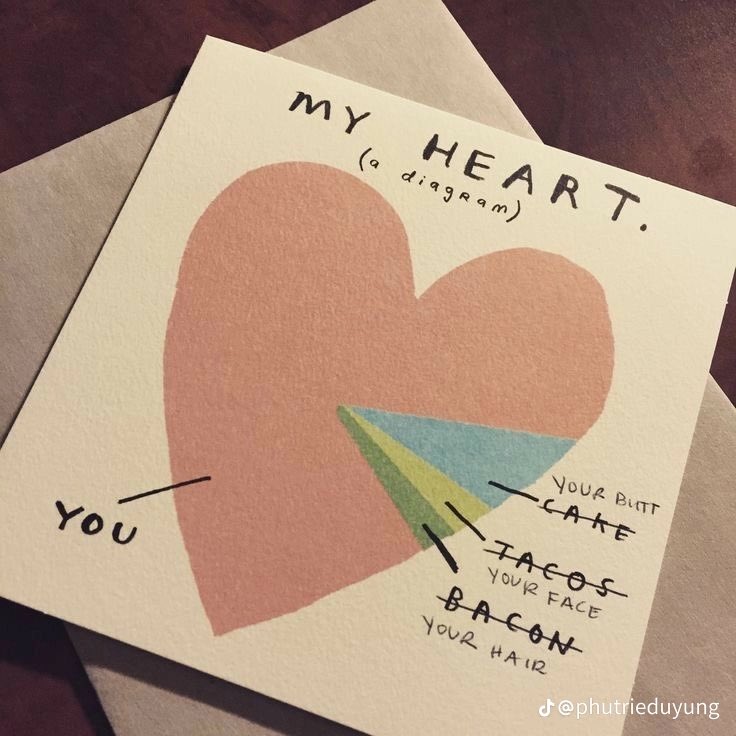 MY HEART.
(a diagram)
YOU
YOUR BUTT
CAKE
TACOS
YOUR FACE
BACON
YOUR HAIR
@phutrieduyung